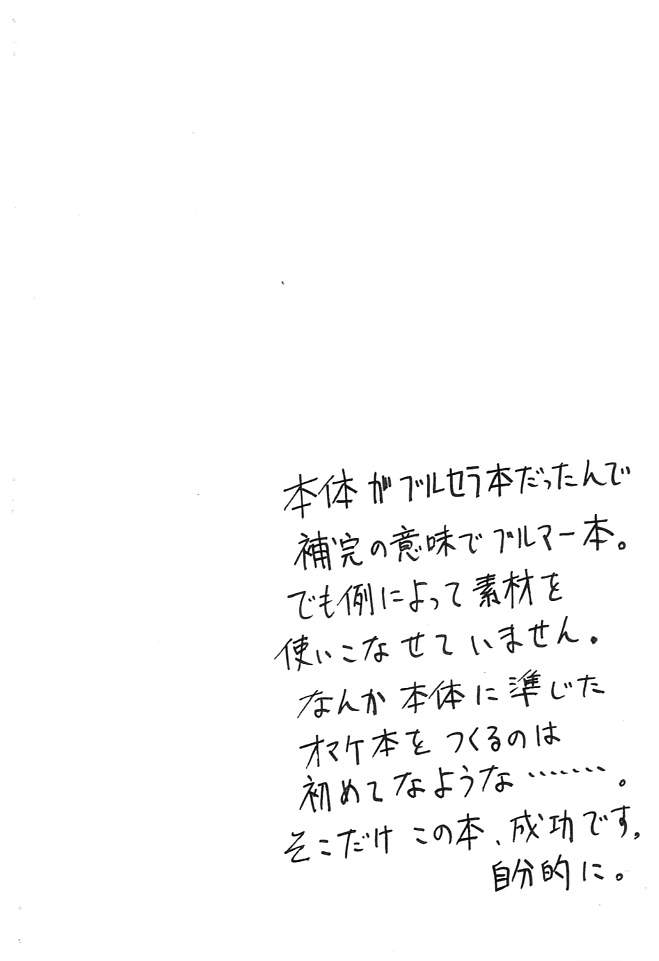 本体がブルセラ本だったんで
補完の意味でブルマー本。
でも例によって素材を
使いこなせていません。
なんか本体に準じた
オマケ本をつくるのは
初めてなような………。
そこだけこの本、成功です。
自分的に。